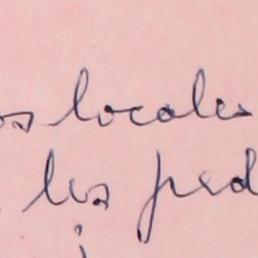 os locales
les ped